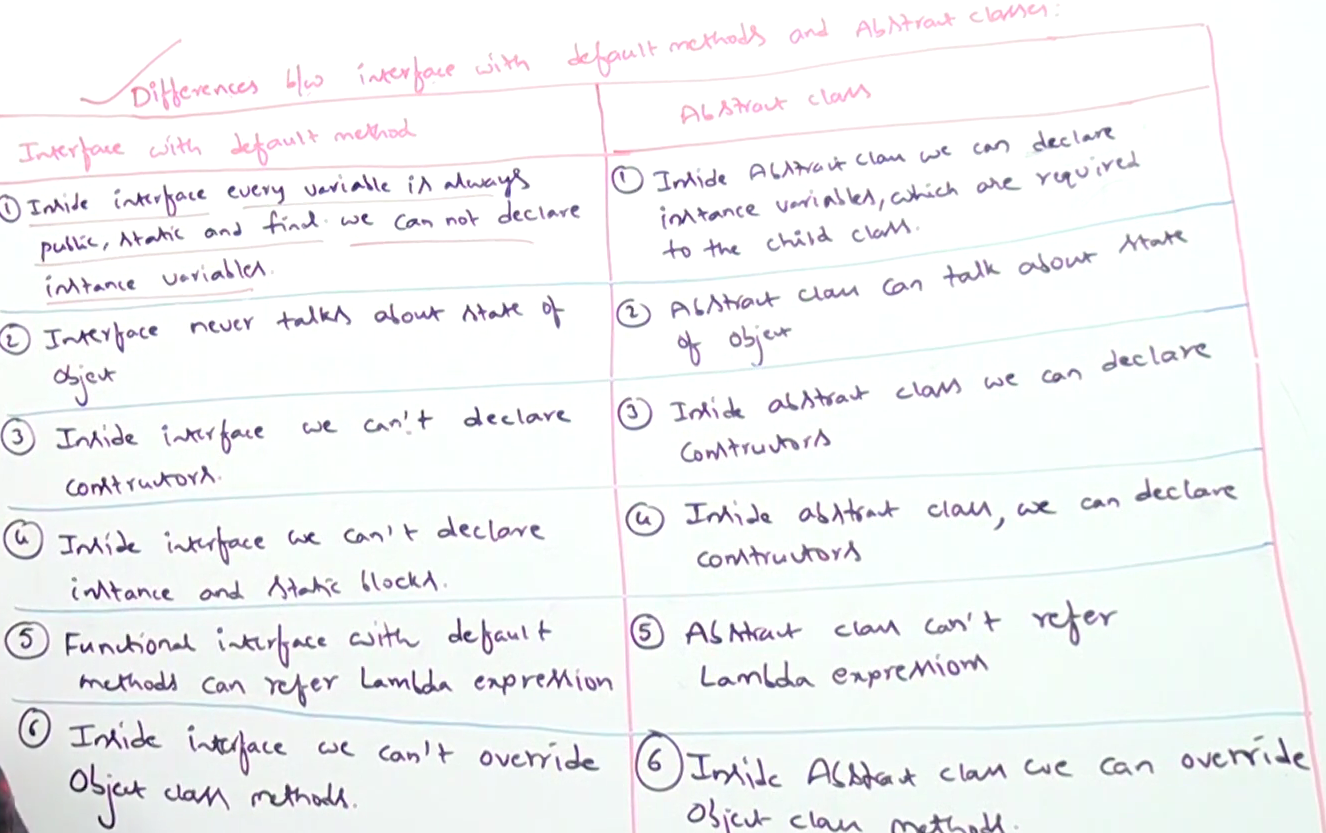 Differences b/w interface with default methods and Abstract classes:
Interface with default method
Abstract class
① Inside interface every variable is always
public, static and final. we can not declare
instance variables.
① Inside Abstract class we can declare
instance variables, which are required
to the child class.
② Interface never talks about state of
object
② Abstract class can talk about state
of object
③ Inside interface we can't declare
constructors.
③ Inside abstract class we can declare
constructors
④ Inside interface we can't declare
instance and static blocks.
④ Inside abstract class, we can declare
constructors
⑤ Functional interface with default
methods can refer Lambda expression
⑤ Abstract class can't refer
Lambda expressions
⑥ Inside interface we can't override
Object class methods.
⑥ Inside Abstract class we can override
Object class methods.